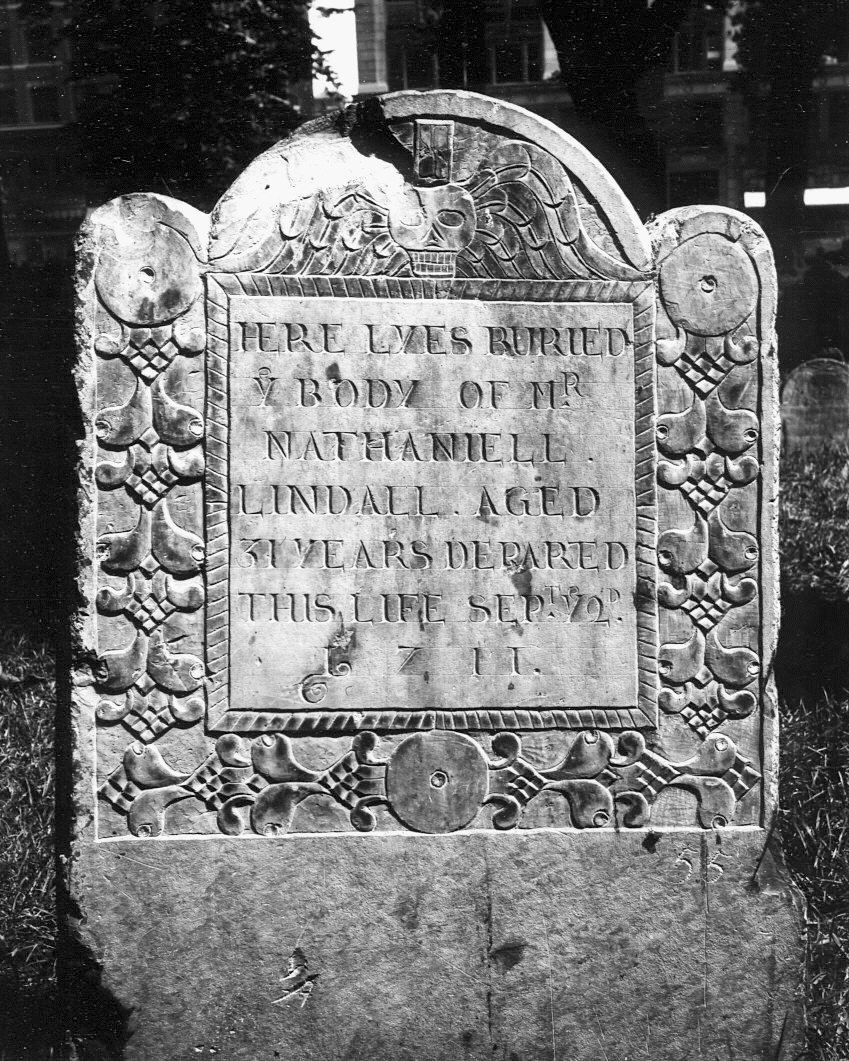 HERE LYES BURIED
Yᵉ BODY OF Mᴿ
NATHANIELL .
LINDALL . AGED
31 YEARS DEPARED
THIS LIFE SEPᵀ. Yᴱ 2ᴰ.
1 7 1 1.
55